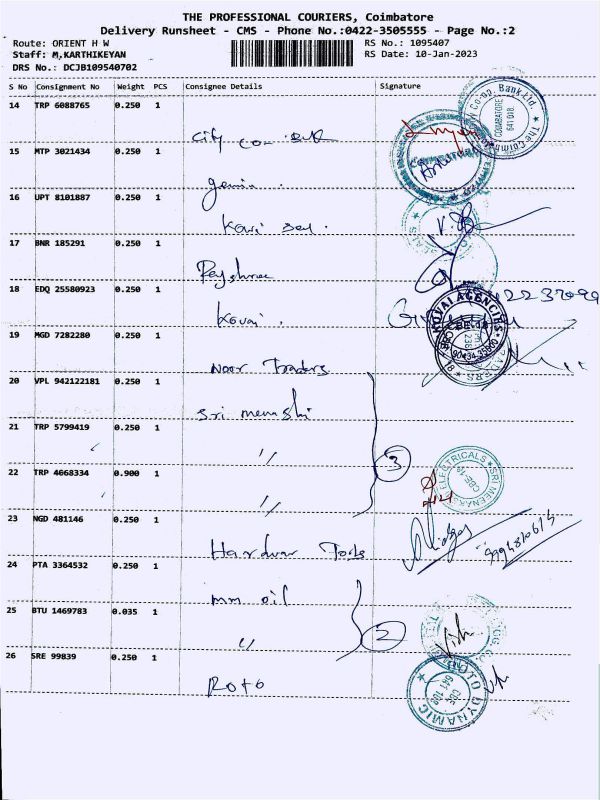 THE PROFESSIONAL COURIERS, Coimbatore
Delivery Runsheet - CMS - Phone No.:0422-3505555 - Page No.:2
Route: ORIENT H W
RS No.: 1095407
Staff: M,KARTHIKEYAN
RS Date: 10-Jan-2023
DRS No.: DCJB109540702
S No Consignment No Weight PCS Consignee Details Signature
14 TRP 6088765 0.250 1
City
15 MTP 3021434 0.250 1
gemini
16 UPT 8101887 0.250 1
17 BNR 185291 0.250 1
Rajshree
18 EDQ 25580923 0.250 1
Kovai
19 MGD 7282280 0.250 1
Noor Traders
20 VPL 942122181 0.250 1
Sri
21 TRP 5799419 0.250 1
"
22 TRP 4668334 0.900 1
"
3
23 NGD 481146 0.250 1
Hardwar Tools
24 PTA 3364532 0.250 1
mm oil
25 BTU 1469783 0.035 1
"
2
26 SRE 99839 0.250 1
Roto
Co-op. Bank Ltd. * The Coimb
COIMBATORE
641 018
KOVAI AGENCIES
ELECTRICALS * SRI MEENA
ROTO DYNAMIC
CBE